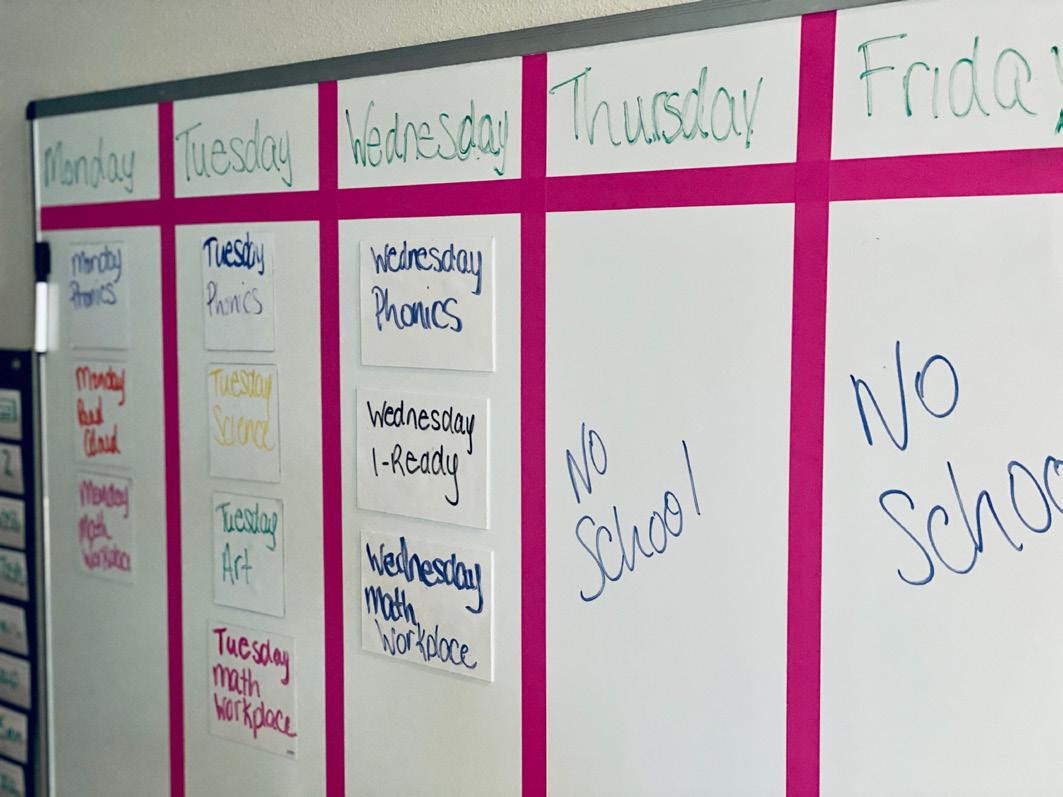 Monday
Tuesday
Wednesday
Thursday
Frida
Monday
Phonics
Monday
Red
Cloud
Monday
Math
Workplace
Tuesday
Phonics
Tuesday
Science
Tuesday
Art
Tuesday
math
Workplace
Wednesday
Phonics
Wednesday
I-Ready
Wednesday
Math
Workplace
No
School
No
Schoo